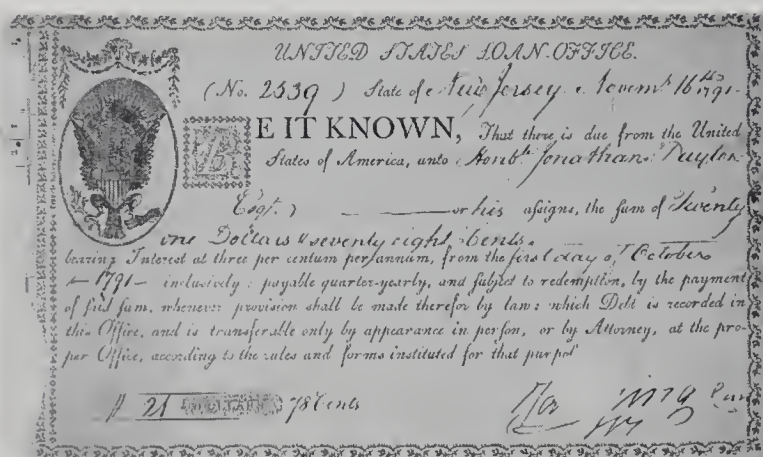 UNITED STATES LOAN-OFFICE.
(No. 2539) State of New Jersey Novemr. 16th 1791
BE IT KNOWN, That there is due from the United
States of America, unto Honble. Jonathan Dayton
Esqr. or his aſsigns, the ſum of Twenty
one Dollars & seventy eight Cents.
bearing Interest at three per centum per annum, from the first day of October
1791 incluſively : payable quarter-yearly, and ſubject to redemption, by the payment
of ſaid ſum, whenever proviſion ſhall be made therefor by law: which Debt is recorded in
this Office, and is transferable only by appearance in perſon, or by Attorney, at the pro-
per Office, according to the rules and forms inſtituted for that purpoſ
21 78 Cents